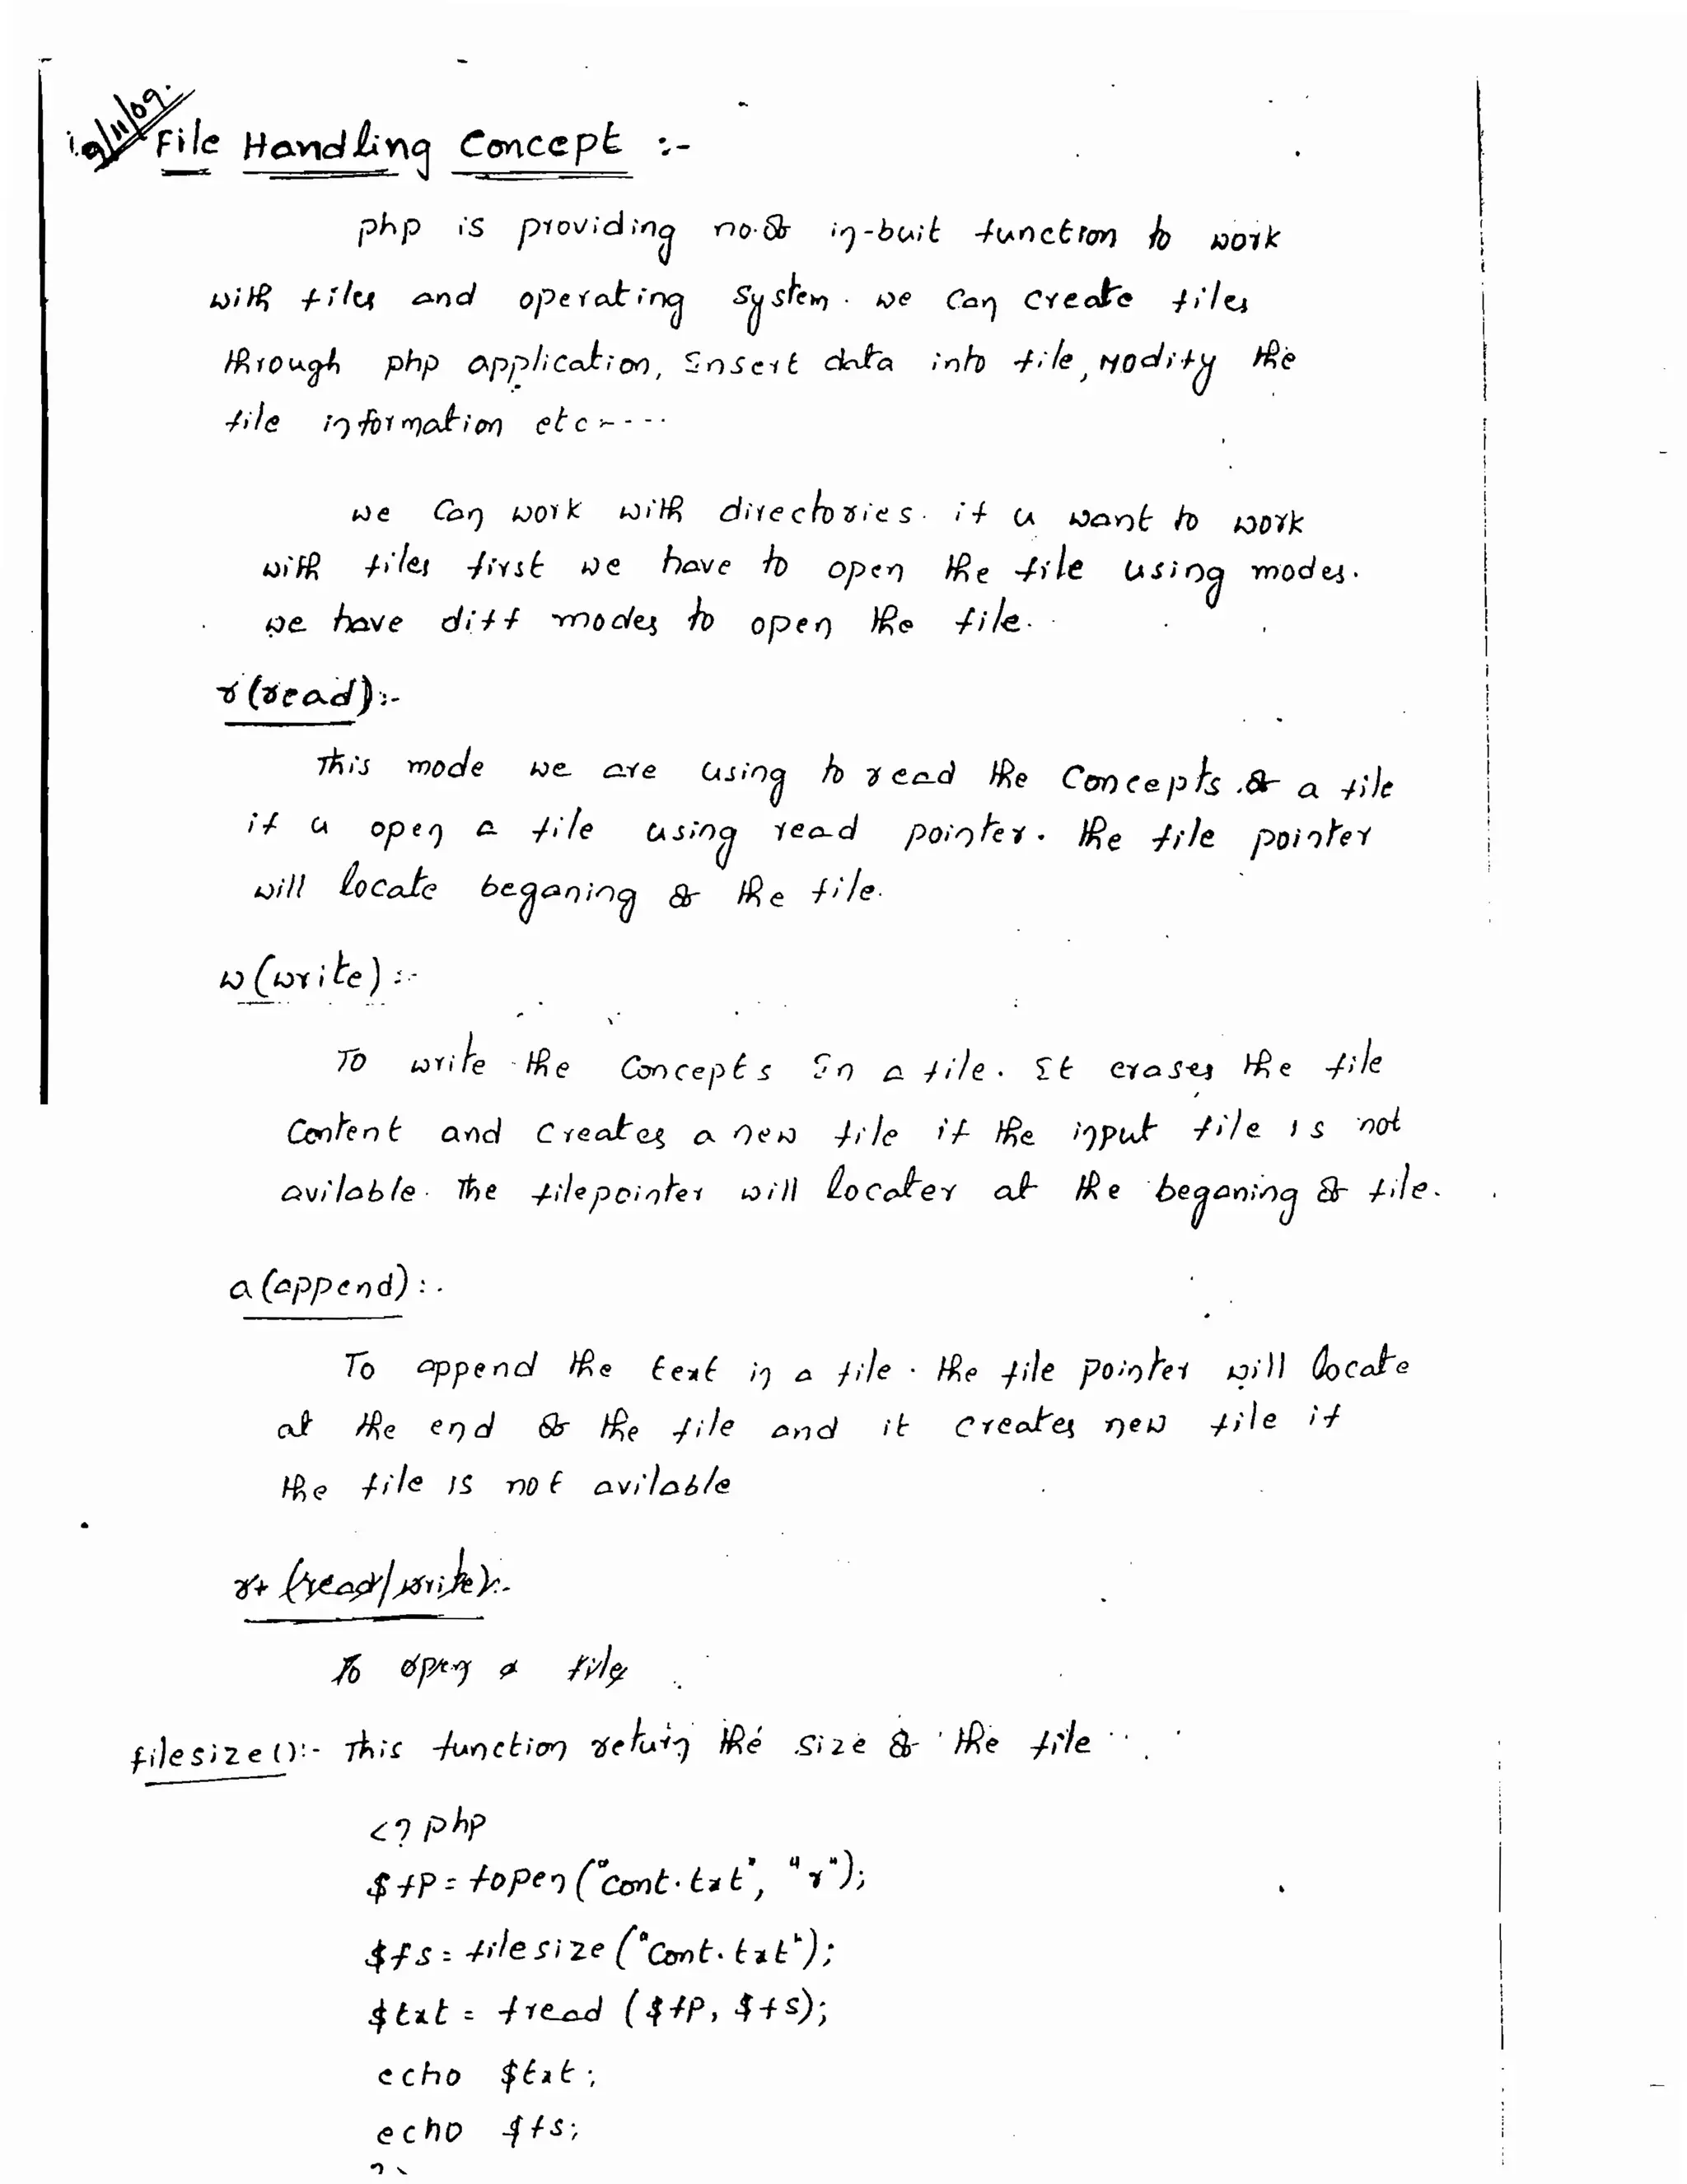 19/11/09.
File Handling Concept :-
php is providing no.of in-buit function to work
with files and operating system. we can create files
through php application, Insert data into file, Modify the
file information etc----
we can work with directories. if u want to work
with files first we have to open the file using modes.
we have diff modes to open the file.
r(read):-
This mode we are using to read the Concepts of a file
if u open a file using read pointer. the file pointer
will locate beganing of the file.
w(write):-
To write the Concepts In a file. It erases the file
Content and Creates a new file if the input file is not
avilable. The filepointer will locater at the beganing of file.
a(append):-
To append the text in a file. the file pointer will locate
at the end of the file and it creates new file if
the file is not avilable
r+ (read/write):-
To open a file
filesize():- This function return the size of the file
<?php
$fp = fopen("cont.txt", "r");
$fs = filesize("cont.txt");
$txt = fread ($fp, $fs);
echo $txt;
echo $fs;